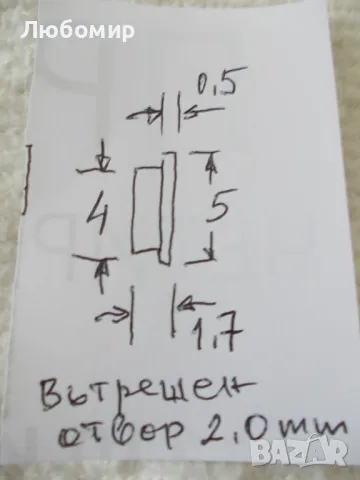 Любомир
0,5
4
5
1,7
Вътрешен
отвор 2.0 mm
BAZAR